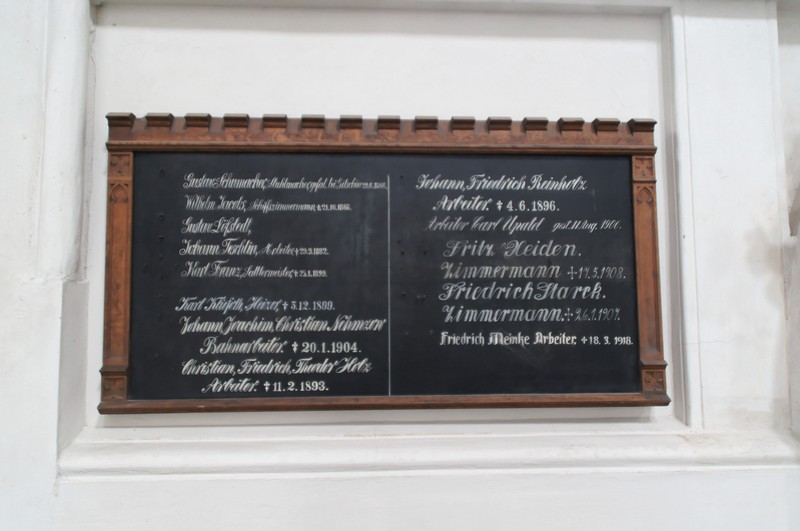 Gustav Schumacher,
Wilhelm Jacobs, Schiffszimmermann, †
Gustav
Johann Techlin, Arbeiter, † 29.3.1892.
Karl Franz, Sattlermeister, † 25.1.1899.
Karl Heizer, † 3.12.1899.
Johann, Joachim, Christian Neumzow
Bahnarbeiter. † 20.1.1904.
Christian, Friedrich, Theodor Holz
Arbeiter. † 11.2.1893.
Johann, Friedrich Reinholz,
Arbeiter. † 4.6.1896.
Arbeiter Carl Upahl gest. 11 Aug. 1900.
Fritz Heiden.
Zimmermann
Friedrich Starck.
Zimmermann.
Friedrich Meinke Arbeiter, † 18. 3. 1918.